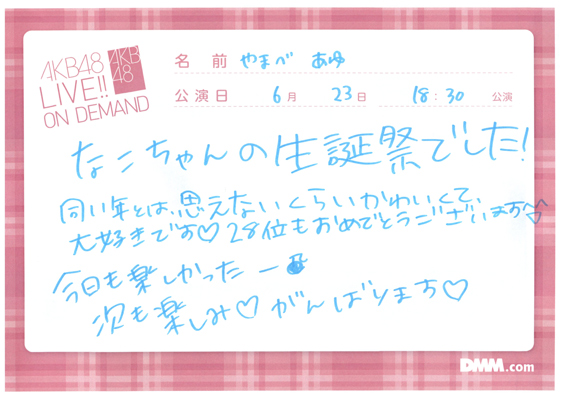 AKB48
LIVE!!
ON DEMAND
AKB
48
名 前 やまべ あゆ
公演日 6月 23日 18:30 公演
なこちゃんの生誕祭でした!
同い年とは、思えないくらいかわいくて、
大好きです♡28位もおめでとうございます
今日も楽しかったー
次も楽しみ♡がんばります♡
DMM.com